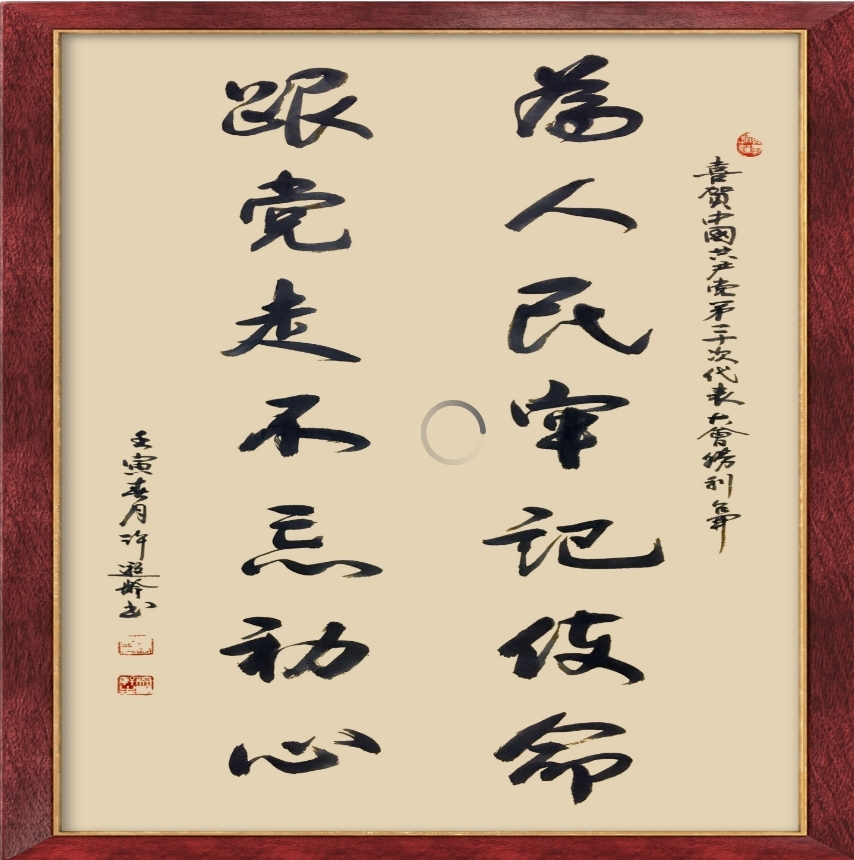 喜賀中國共产党第二十次代表大會勝利召開
為人民牢記使命
跟党走不忘初心
壬寅春月許書